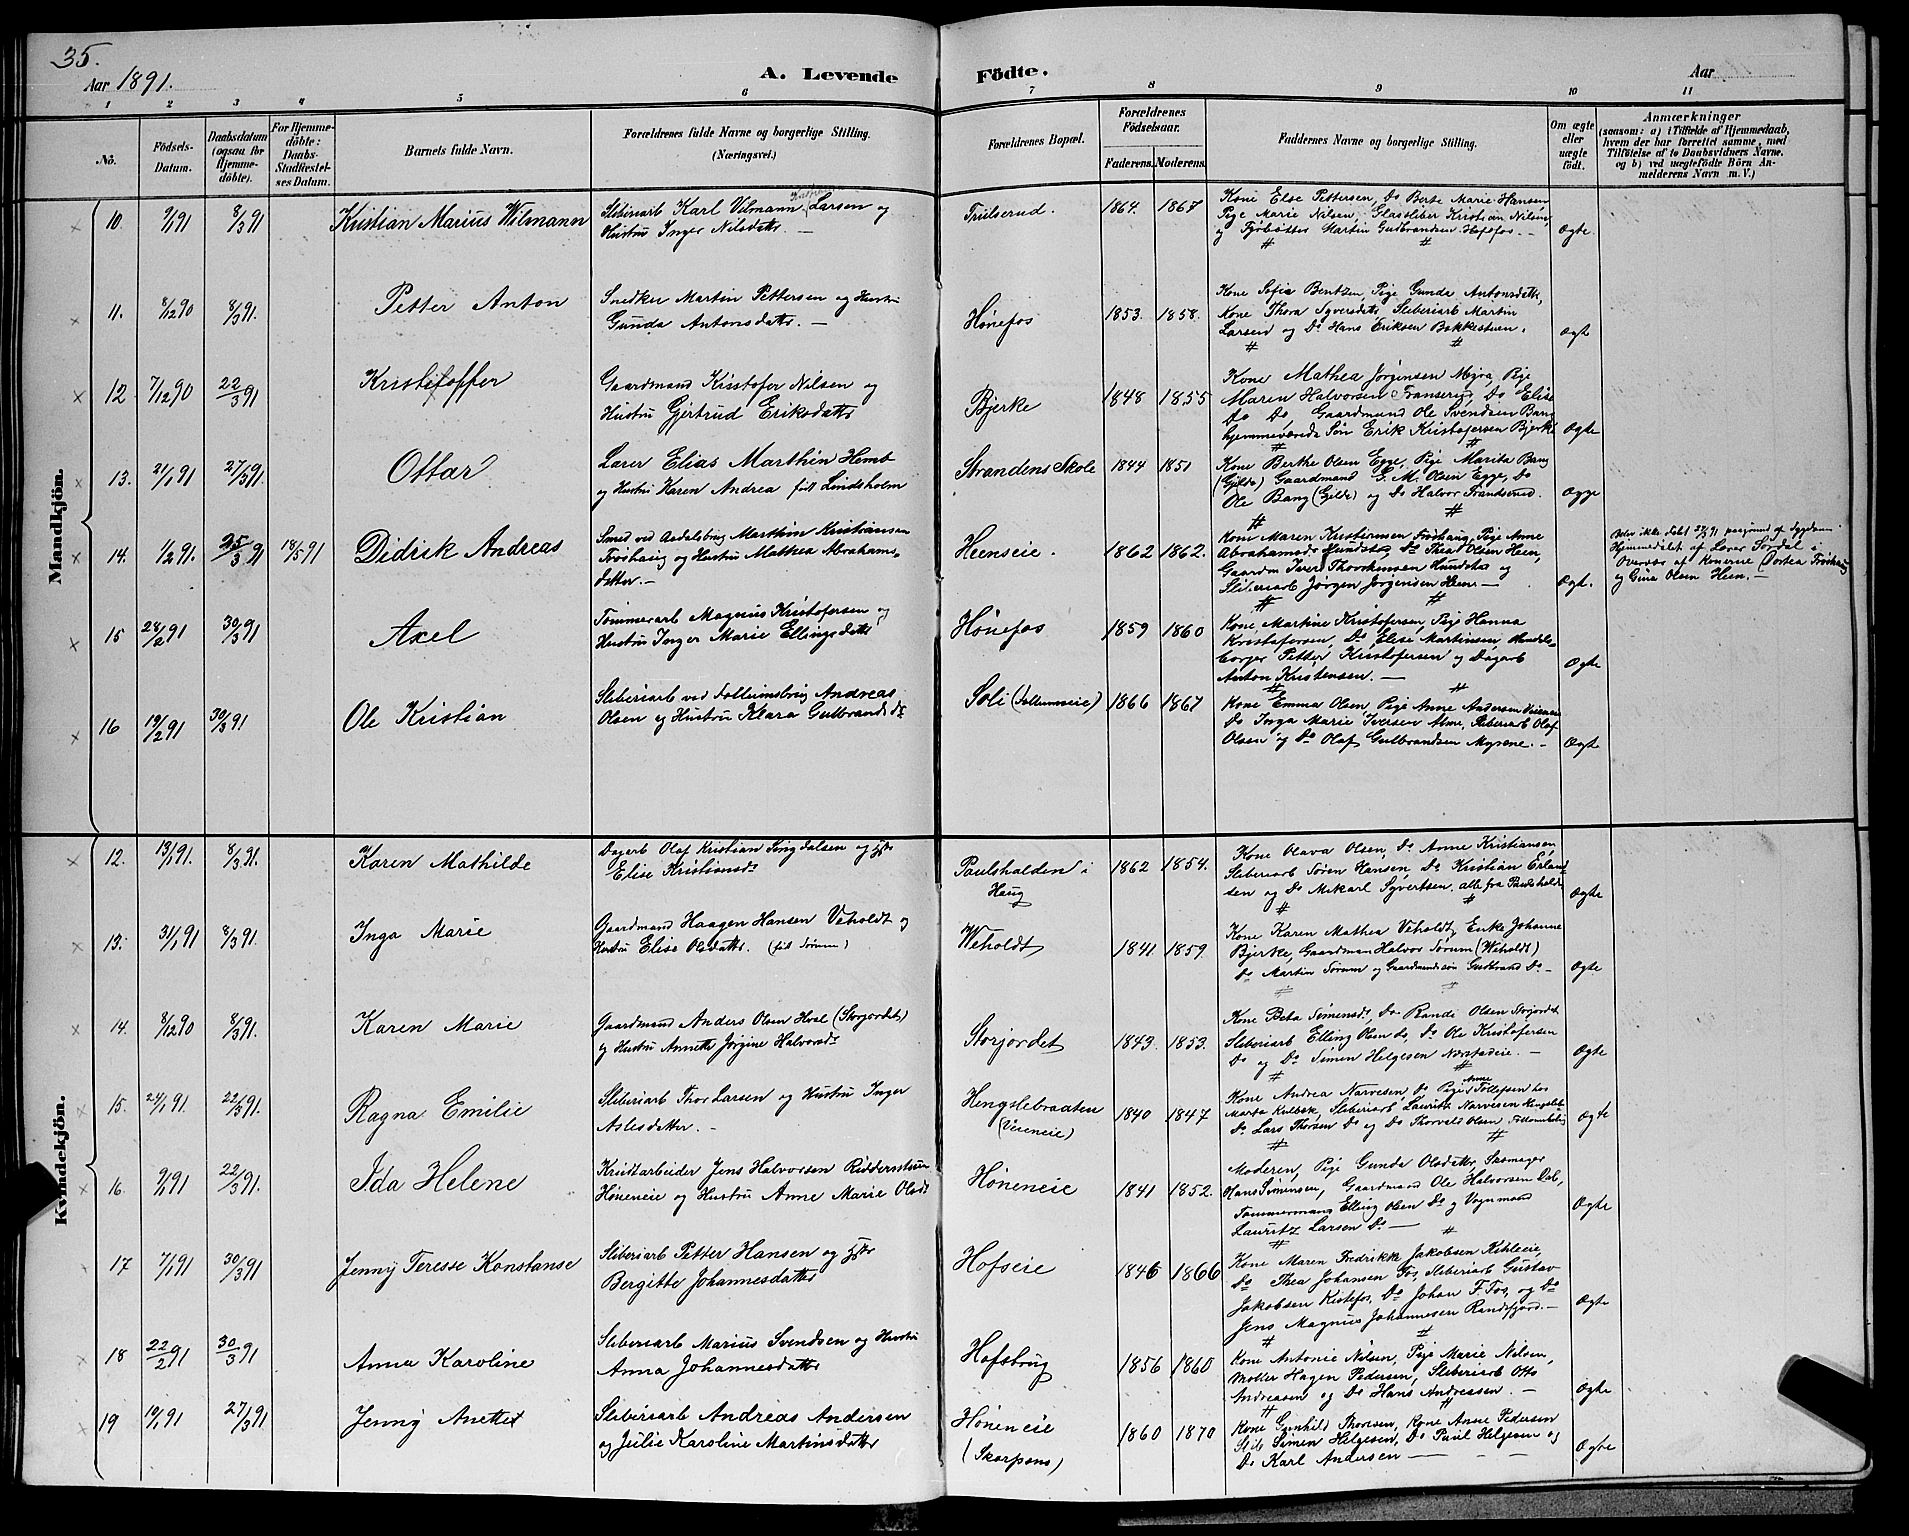 35.
Aar 1891.
A. Levende Födte.
Aar
1 2 3 4 5 6 7 8 9 10 11
No.
Födsels-Datum.
Daabsdatum (ogsaa for Hjemme-döbte).
For Hjemme-döbte: Daabs-Stadfæstel-ses Datum.
Barnets fulde Navn.
Forældrenes fulde Navne og borgerlige Stilling.
(Næringsvei.)
Forældrenes Bopæl.
Forældrenes Födselsaar.
Faderens. Moderens.
Faddernes Navne og borgerlige Stilling.
Om ægte eller uægte födt.
Anmærkninger
(saasom: a) i Tilfælde af Hjemmedaab, hvem der har forrettet samme, med Tilföielse af to Daabsvidners Navne, og b) ved uægtefödte Börn An-melderens Navn m. V.)
Mandkjön.
10. 9/1 91 8/3 91 Kristian Marius Wilmann
Sliberiarb Karl Vilmann Larsen og
Hustru Inger Nilsdatter. —
Trulserud. 1864. 1867
Kone Else Pettersen, Do Berte Marie Hansen
Pige Marie Nilsen, Glassliber Kristian Nilsen,
og Martin Gudbrandsen Hofsfos. —
Ægte.
11. 8/12 90 8/3 91. Petter Anton
Snedker Martin Pettersen og Hustru
Gunda Antonsdatter. —
Hönefos 1853. 1858.
Kone Sofie Bentzen, Pige Gunda Antonsdatter,
Kone Thora Syversdatter, Sliberiarb Martin
Larsen og Do Hans Eriksen Bakkestuen.
Ægte
12 7/12 90 22/3 91 Kristoffer
Gaardmand Kristofer Nilsen og
Hustru Gjertrud Eriksdatter
Bjerke 1848 1855
Kone Mathea Jörgensen Myra, Pige
Maren Halvorsen Transerud, Do Elise
do Do, Gaardmand Ole Svendsen Bang
hjemmeværende Sön Erik Kristofersen Bjerke
Ægte
13. 21/1 91 27/3 91. Ottar
Lærer Elias Marthin Hemb
og Hustru Karen Andrea föd Lindsholm
Strandens Skole 1844 1851
Kone Berthe Olsen Egge, Pige Marita Bang
(Gjilde) Gaardmand G. M. Olsen Egge, Do
Ole Bang (Gjilde) og Do Halvor Frandserud.
Ægge
14. 1/2 91. 25/3 91 18/5 91 Didrik Andreas
Smed ved Aadalsbrug Marthin Kristiansen
Fröshaug og Hustru Mathea Abrahams-
datter. —
Heenseie. 1862 1862.
Kone Maren Kristiansen Fröhaug, Pige Anne
Abrahamsd Hundsta, Do Thea Olsen Heen,
Gaardm Iver Thorstensen Hundsta og
Sliberiarb Jörgen Jörgensen Heen —
Ægte.
Blev ikke døbt 27/3 91 paagrund af Sygdom.
Hjemmedøbt af Lærer Sørdal i
Overvær af Konerne Dortea Fröshaug
og Gina Olsen Heen. —
15 28/2 91 30/3 91 Axel
Tömmerarb Magnus Kristofersen og
Hustru Inger Marie Ellingsdatter
Hönefos 1859 1860
Kone Martine Kristofersen, Pige Hanna
Kristofersen, Do Elise Martinsen, Handels-
borger Petter Kristofersen og Dagarb
Anton Kristensen. —
Ægte
16 19/2 91 30/3 91 Ole Kristian
Sliberiarb ved Follumsbrug Andreas
Olsen og Hustru Klara Gulbrandsdr
Soli (Follumseie) 1866 1867
Kone Emma Olsen, Pige Anne Andersen
Do Inga Marie Iversen Alme, Sliberiarb Olaf
Olsen og Do Olaf Gulbrandsen Myrene. —
Ægte
Kvindekjön.
12. 13/1 91. 8/3 91. Karen Mathilde
Dagarb Olaf Kristian Songdalsen og
Elise Kristiansdr
Paulshalden i
Haug
1862 1854.
Kone Olava Olsen, Do Anne Kristiansen,
Sliberiarb Sören Hansen, Do Kristian Erland-
sen og Do Mikael Syvertsen, alle fra Paulshalden
Ægte
13. 31/1 91 8/3 91. Inga Marie
Gaardmand Haagen Hansen Veholdt og
Hustru Elise Olsdatter. (föd Sörum)
Weholdt 1841 1859.
Kone Karen Mathea Veholdt, Enke Johanne
Bjerke, Gaardman Halvor Sörum (Weholdt)
Do Martin Sörum og Gaardmandssön Gudbrand Do —
Ægte
14. 8/12 90 8/3 91. Karen Marie
Gaardmand Anders Olsen Hval (Storjordet)
og Hustru Annette Jörgine Halvorsdr
Storjordet 1843. 1853.
Kone Beta Simensdr, Do Rande Olsen Storjordet
Sliberiarb Elling Olsen do, Do Ole Kristofersen
Do og Do Simen Helgesen Nærstadeie. —
Ægte
15. 24/1 91. 22/3 91. Ragna Emilie
Sliberiarb Thor Larsen og Hustru Inger
Aslesdatter. —
Hengslebraaten
(Veieneie)
1840 1847
Kone Andrea Narvesen Do Pige Anne Tollefsen hos
Marta Kulbek, Sliberiarb Lauritz Narvesen Hengslebr
Do Lars Thorsen Do og Do Thorvald Olsen Follumsbrug
Ægte
16. 9/1 91 22/3 91. Ida Helene
Krudtarbeider Jens Halvorsen Ridderstuen
Höneneie og Hustru Anne Marie Olsdr
Höneneie 1841 1852.
Moderen, Pige Gunda Olsdatter, Skomager
Hans Simensen, Gaardmand Ole Halvorsen Dal,
Tømmermand Elling Olsen Do og Vognmand
Lauritz Larsen Do —
Ægte
17 7/1 91 30/3 91 Jenny Teresse Konstanse
Sliberiarb Petter Hansen og
Bergitte Johannesdatter
Hofseie 1846 1866
Kone Maren Fredrikke Jakobsen Kihleeie,
Do Thea Johansen Fos, Sliberiarb Gustav
Jakobsen Kistefos, Do Johan F Fos, og Do
Jens Magnus Johannesen Randsfjord. —
Ægte
18 22/2 91 30/3 91 Anna Karoline
Sliberiarb Marius Svendsen og Hustru
Anna Johannesdatter
Hofsbrug 1856 1860
Kone Antonie Nilsen, Pige Marie Nilsen,
Möller Hagen Pedersen, Sliberiarb Otto
Andreasen og Do Hans Andreasen. —
Ægte
19 19/1 91 27/3 91 Jenny Anette
Sliberiarb Andreas Andersen
og Julie Karoline Martinsdatter
Höneneie
(Skarpens)
1860 1870
Kone Gunhild Thoresen, Kone Anne Pedersen
Slib Simen Helgesen, Do Paul Helgesen og
Do Karl Andersen —
Ægte